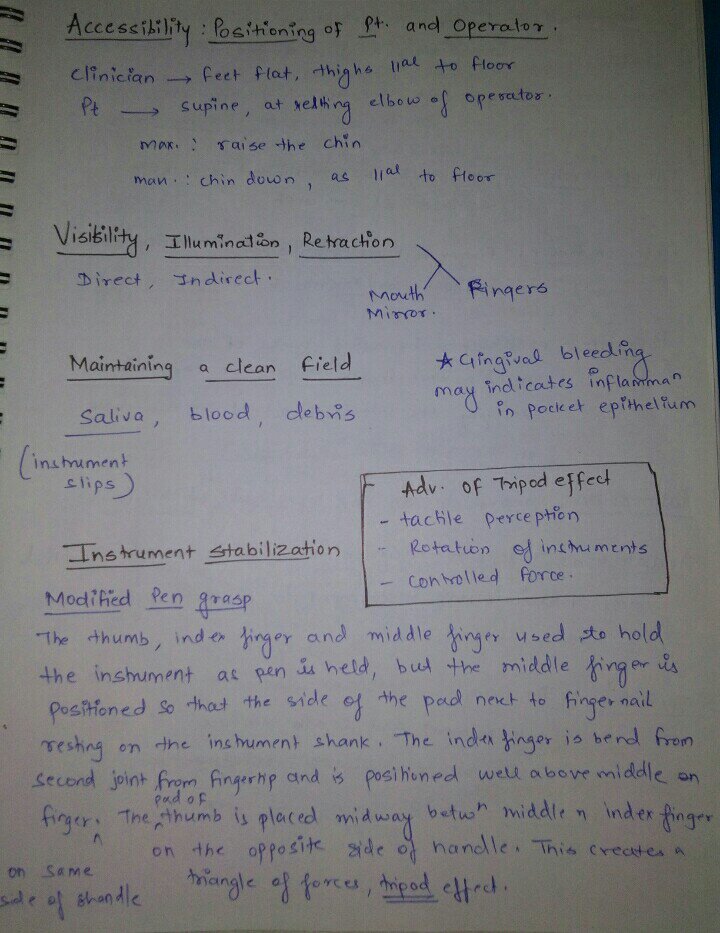 Accessibility : Positioning of Pt. and Operator.
Clinician → feet flat, thighs llal to floor
Pt → supine, at resting elbow of operator.
max. : raise the chin
man. : chin down, as llal to floor
Visibility, Illumination, Retraction
Direct, Indirect.
Mouth Mirror.
Fingers
Maintaining a clean field
Saliva, blood, debris
(instrument
slips)
★ Gingival bleeding
may indicates inflamman
in pocket epithelium
Adv. of Tripod effect
- tactile perception
- Rotation of instruments
- controlled force.
Instrument stabilization
Modified Pen grasp
The thumb, index finger and middle finger used to hold
the instrument as pen is held, but the middle finger is
positioned so that the side of the pad next to finger nail
resting on the instrument shank. The index finger is bend from
second joint from fingertip and is positioned well above middle on
finger. The pad of thumb is placed midway betwn middle n index finger
on the opposite side of handle. This creates a
on same
side of handle
triangle of forces, tripod effect.